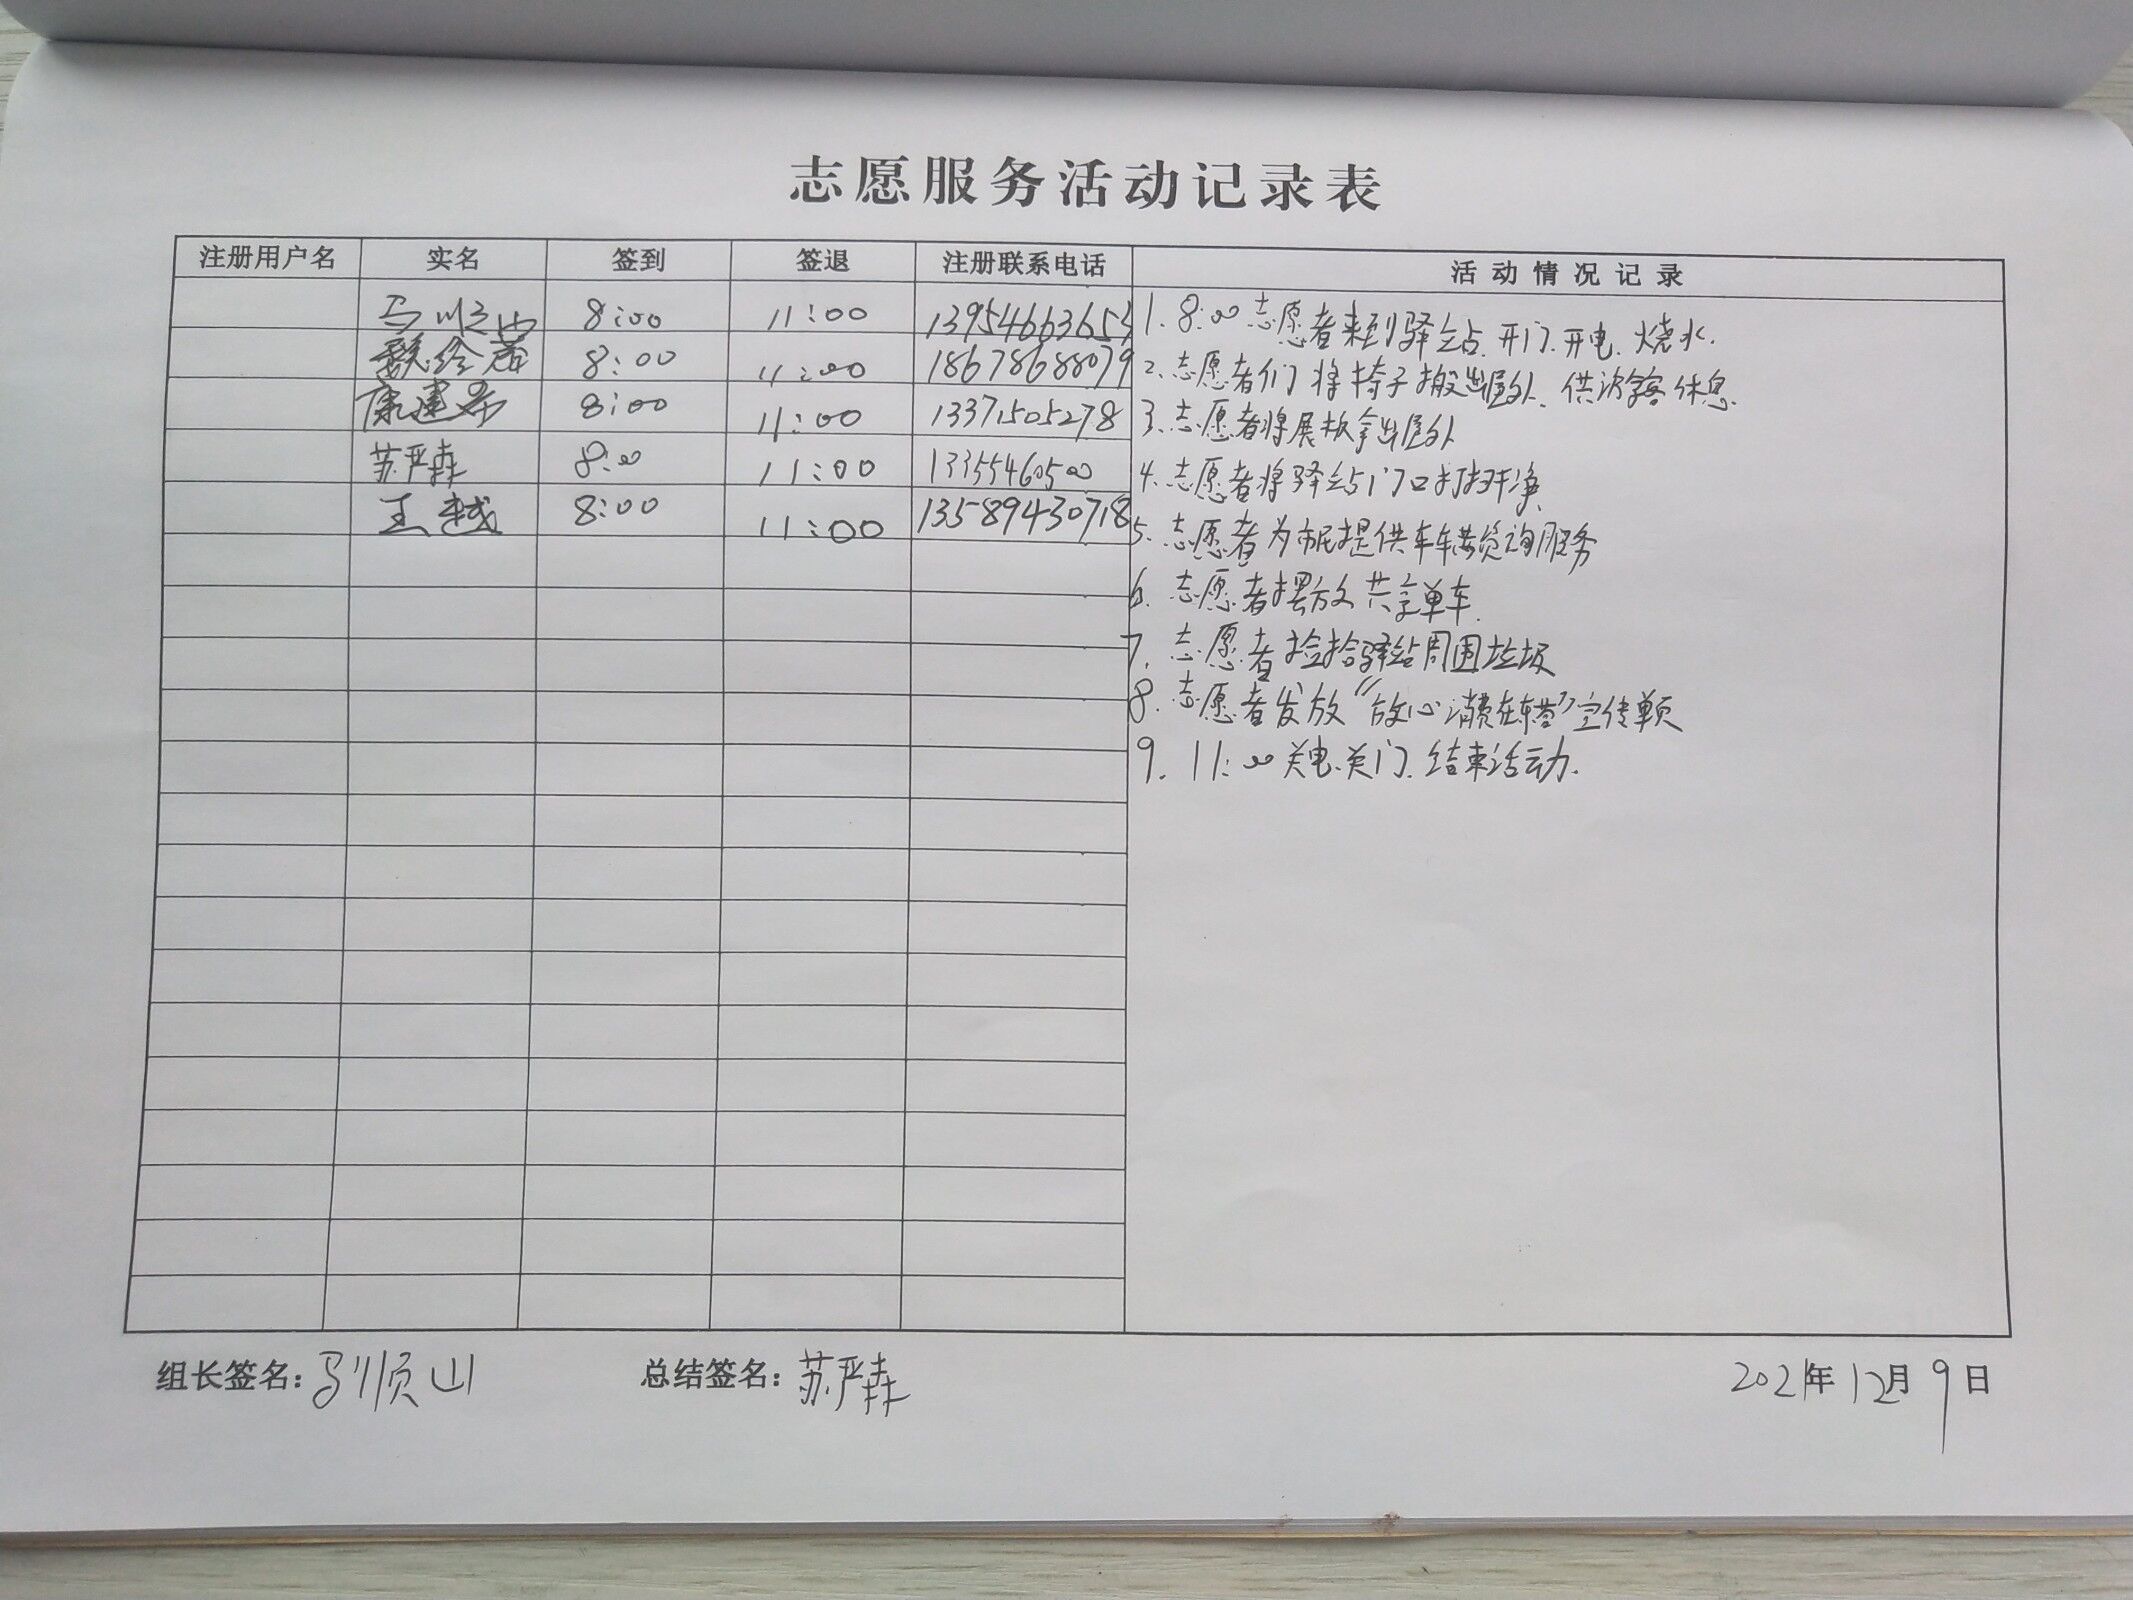 志愿服务活动记录表
注册用户名 实名 签到 签退 注册联系电话 活动情况记录
马顺山 8:00 11:00 13954663653
8:00 11:00 18678688079
康建 8:00 11:00 13371505278
苏严森 8:00 11:00 13355460500
王越 8:00 11:00 13589430718
1. 8:00志愿者来到驿站、开门、开电、烧水.
2. 志愿者们将椅子搬出屋外、供游客休息.
3. 志愿者将展板拿出屋外
4. 志愿者将驿站门口打扫干净
5. 志愿者为市民提供车辆咨询服务
6. 志愿者摆放共享单车.
7. 志愿者捡拾驿站周围垃圾
8. 志愿者发放“放心消费在东营”宣传单页
9. 11:00关电、关门、结束活动.
组长签名：马顺山 总结签名：苏严森 2021年12月9日